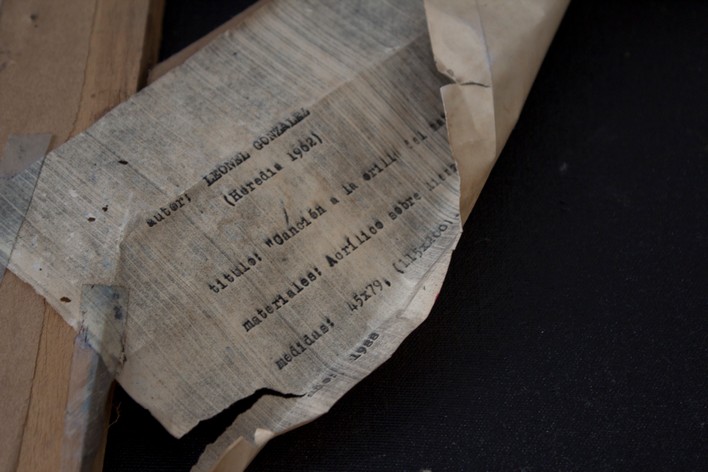 autor: LEONEL GONZALEZ
(Heredia 1962)
titulo: "Canción a la orilla del
materiales: Acrílico sobre
medidas: 45x79, (115x200)
1988